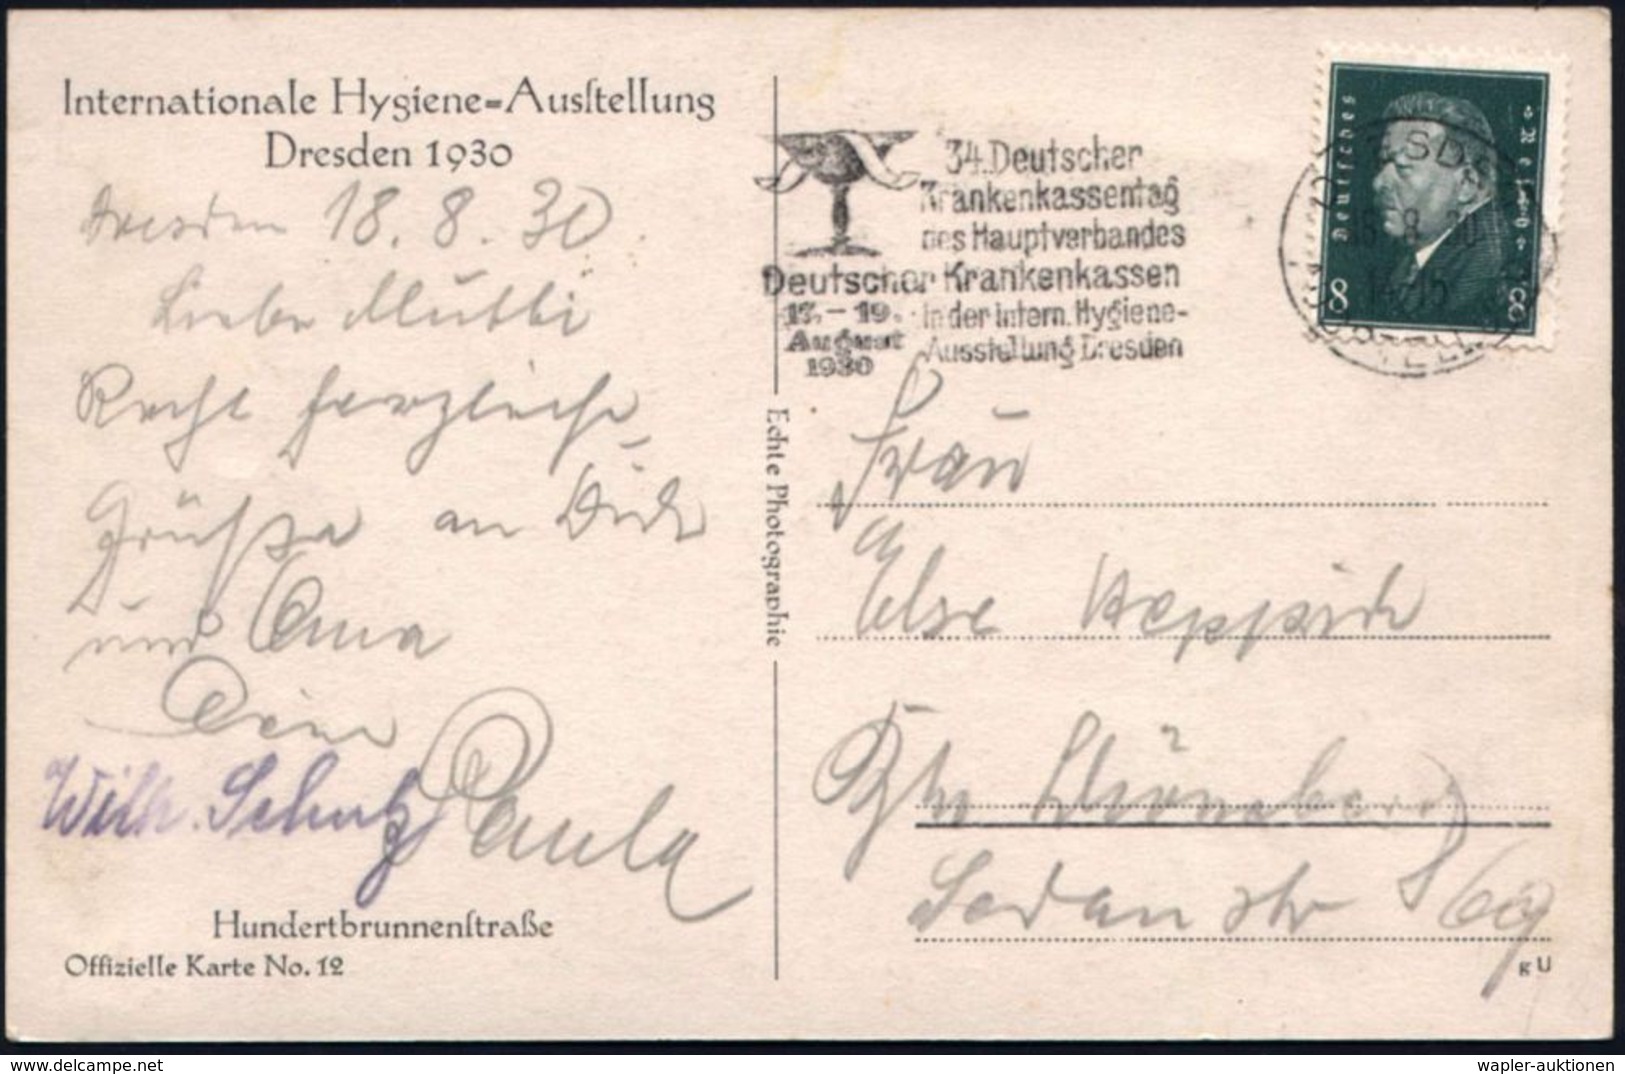 Internationale Hygiene=Ausſtellung
Dresden 1930
Dresden 18. 8. 30
Liebe Mutti
Recht herzliche
Grüße an Dich
und Oma
Dein
Paula
Wilh. Schulz
Hundertbrunnenſtraße
Offizielle Karte No. 12
Echte Photographie
34. Deutscher
Krankenkassentag
des Hauptverbandes
Deutscher Krankenkassen
17. - 19. in der Intern. Hygiene-
August Ausstellung Dresden
1930
Deutsches Reich
8 8
18. 8. 30
14-15
Frau
Else
Sedanstr 69
g U
wapler-auktionen